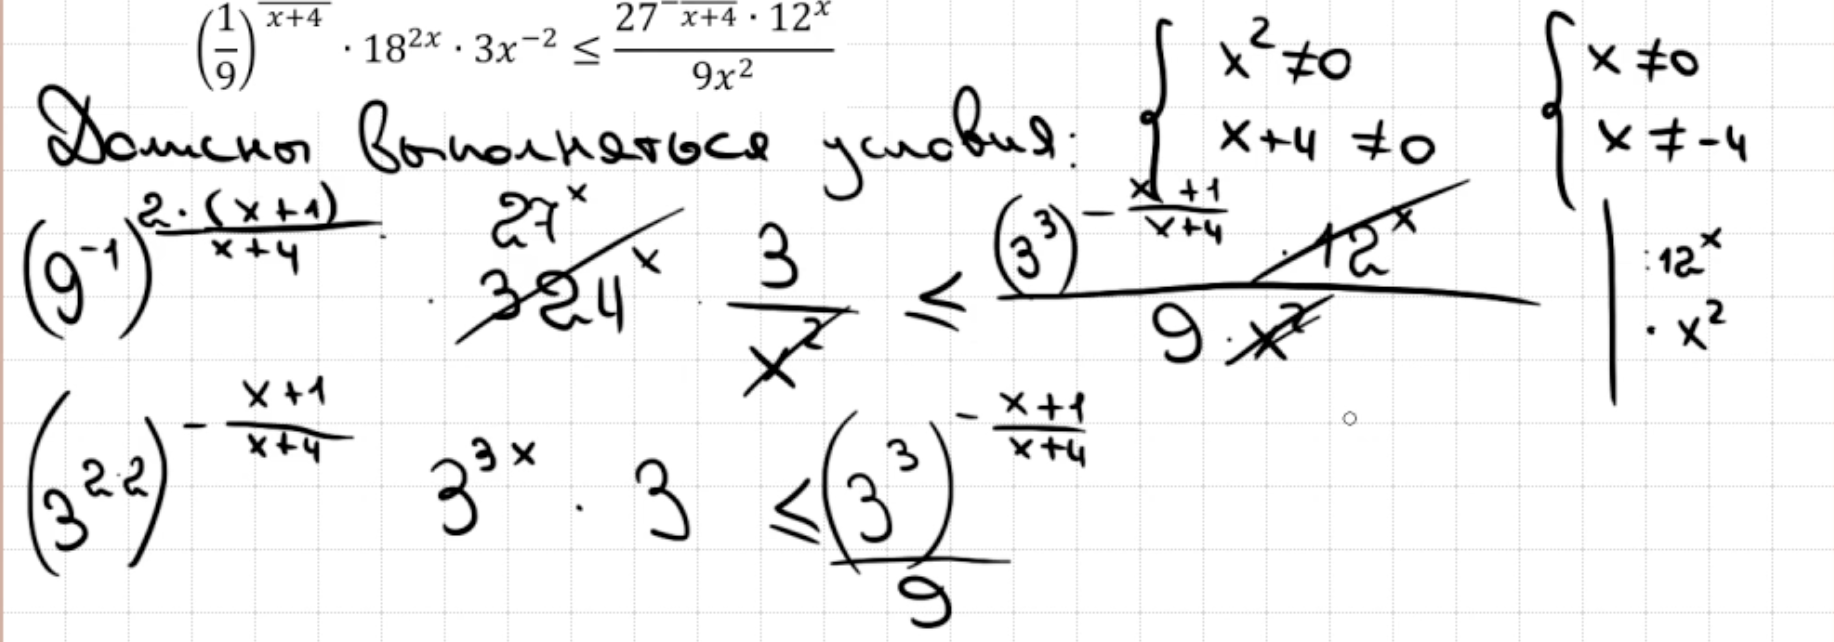 (1/9)^(/(x+4)) · 18^(2x) · 3x^(-2) ≤ (27^(-/(x+4)) · 12^x)/(9x^2)
{ x^2 ≠ 0
x+4 ≠ 0
{ x ≠ 0
x ≠ -4
Должны выполняться условия:
(9^(-1))^(2·(x+1)/(x+4)) · 27^x 324^x · 3/x^2 ≤ ((3^3)^(-(x+1)/(x+4)) · 12^x)/(9·x^2) | :12^x
· x^2
(3^(2·2))^(-(x+1)/(x+4)) 3^(3x) · 3 ≤ ((3^3)^(-(x+1)/(x+4)))/9